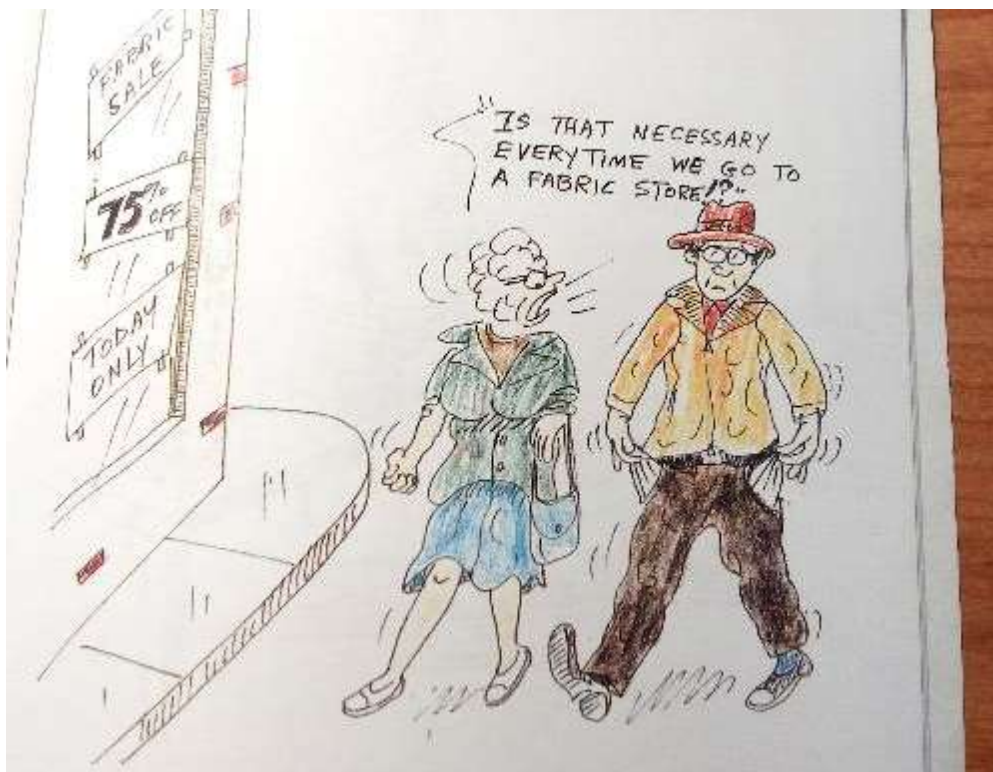 FABRIC
SALE
75% OFF
TODAY
ONLY
"IS THAT NECESSARY
EVERYTIME WE GO TO
A FABRIC STORE!?"